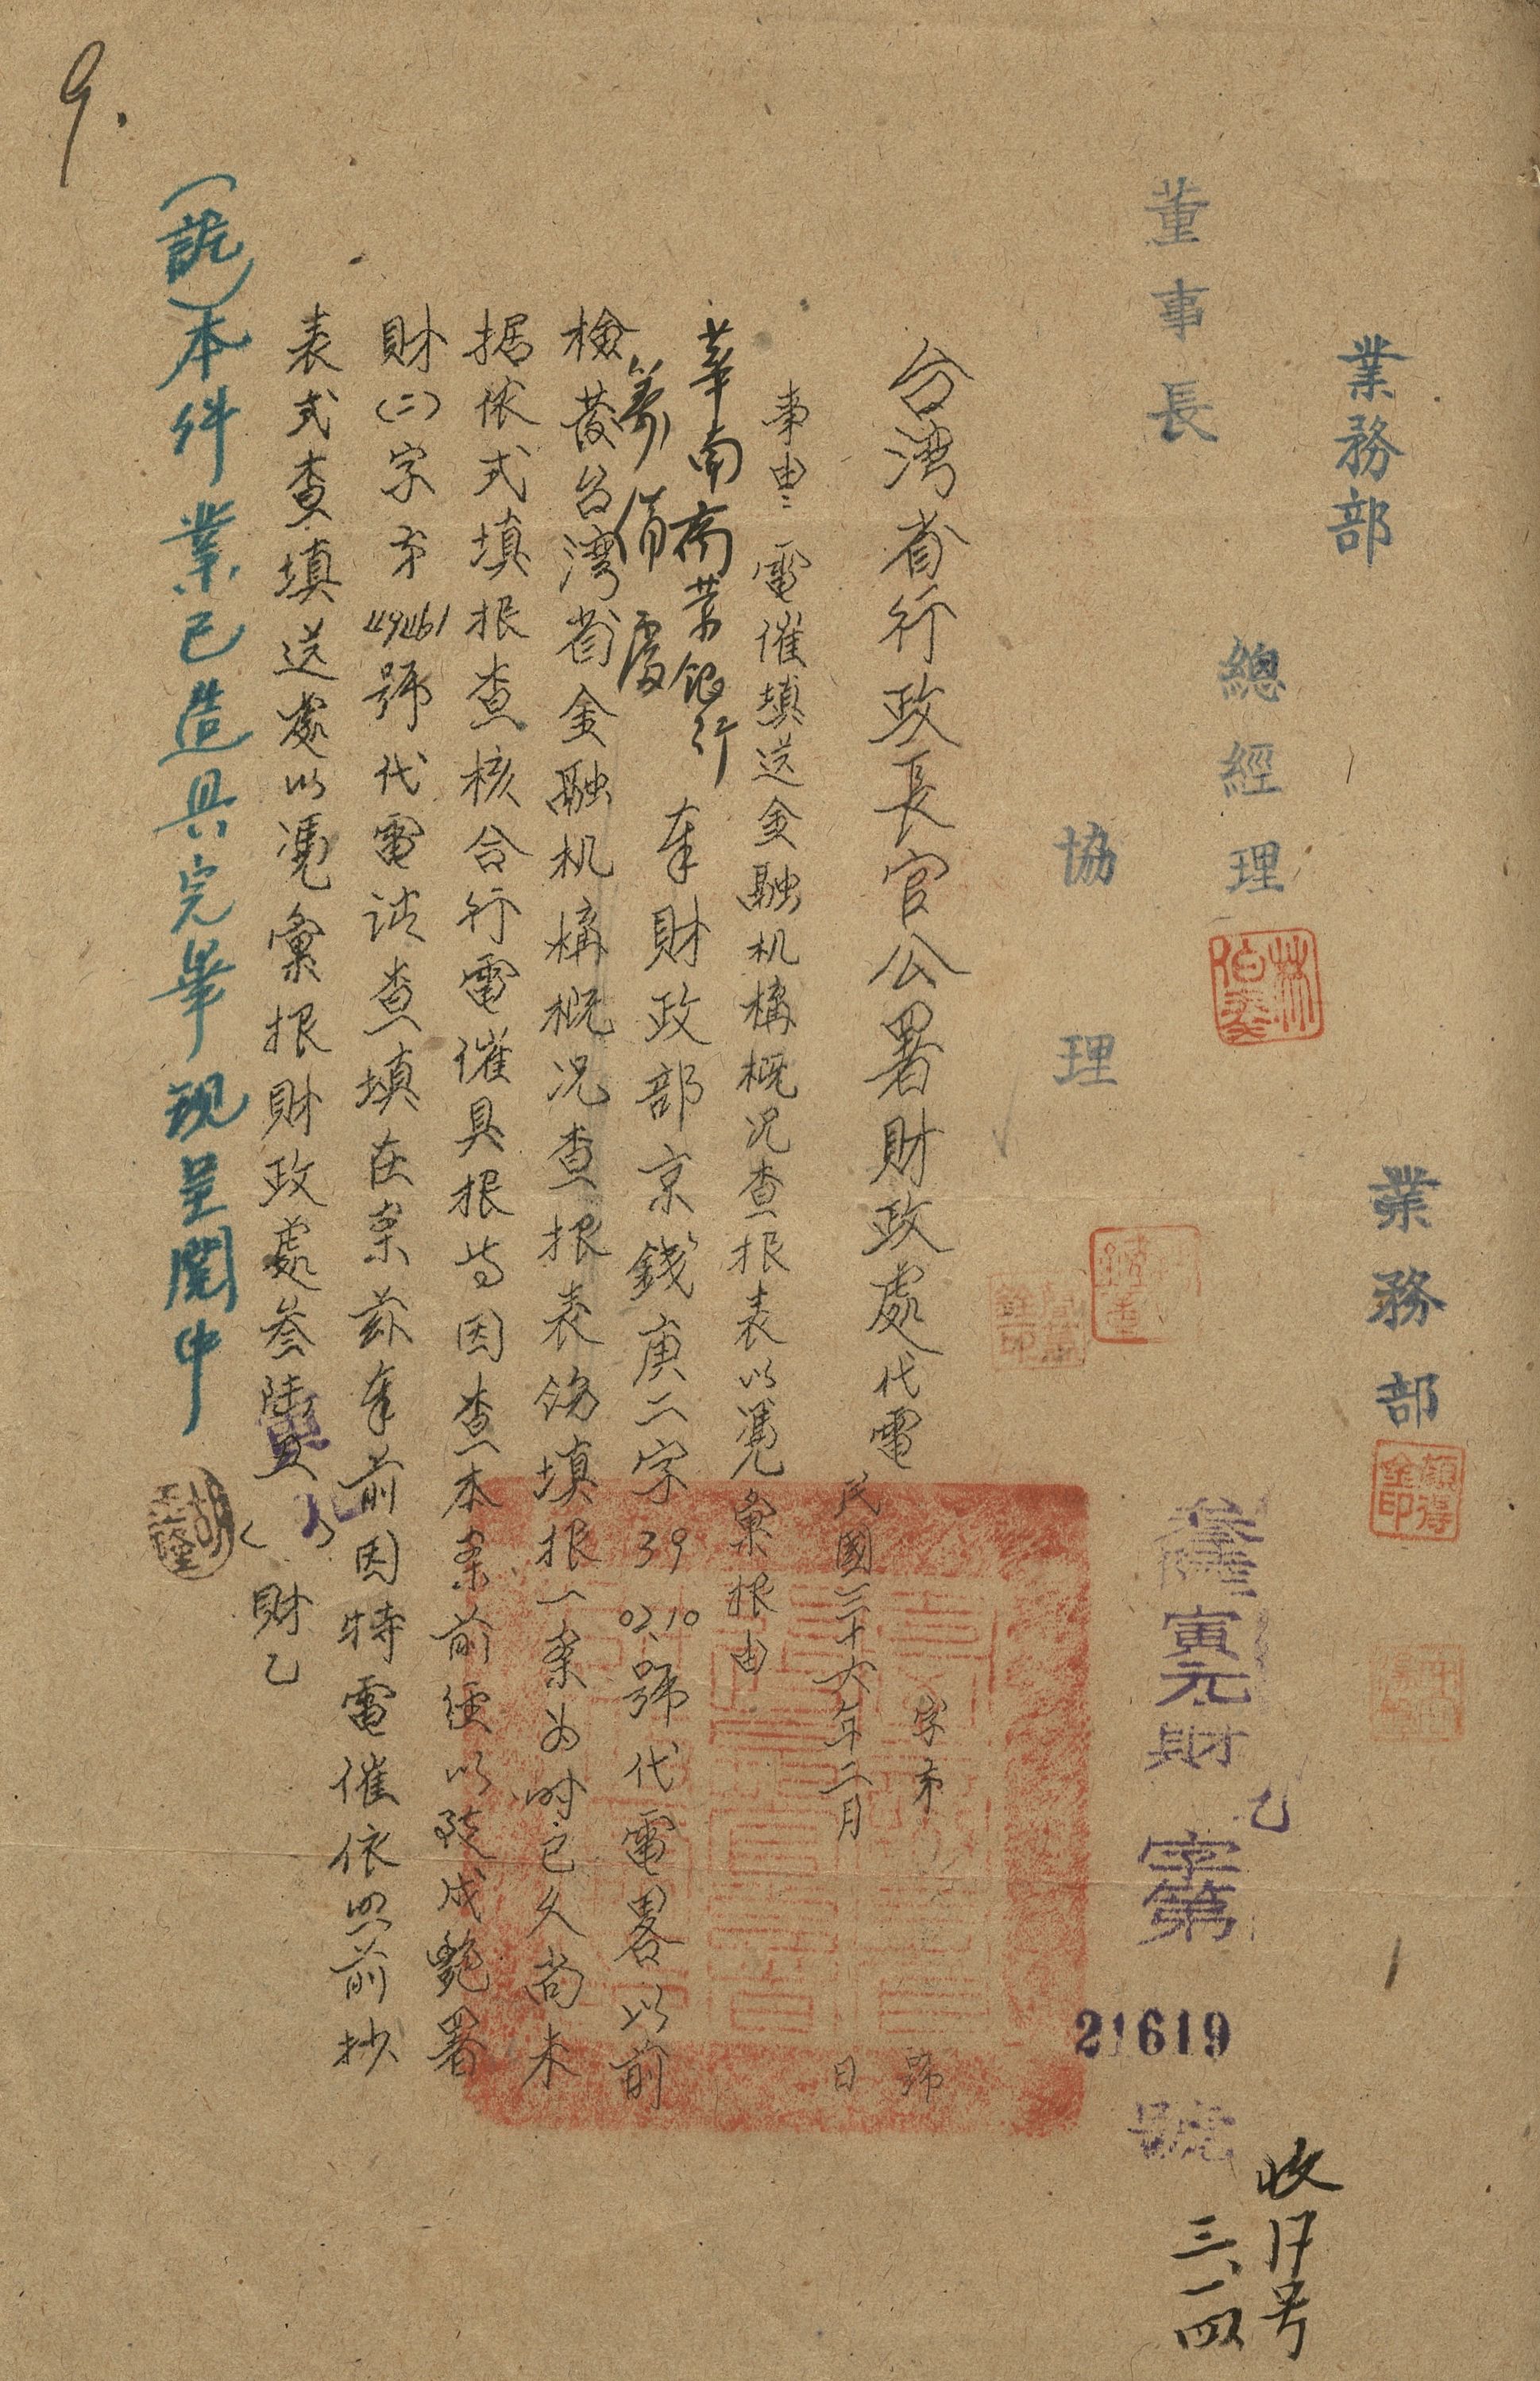 業務部
業務部
總經理
董事長
協理
林伯奏
顏得金印
叁陸寅元財乙字第21619號
收17号
三、一四
台湾省行政長官公署財政處代電
字第號
民國三十六年二月日
事由：電催填送金融机構概况查报表以凭彙报由
華南商業銀行籌備處
奉財政部京錢庚二字3902.10號代電畧以前
檢發台湾省金融机構概况查报表飭填报一案為时已久尚未
据依式填报查核合行電催具报等因查本案前經以致戌艷署
財(二)字第49461號代電請查填在案茲奉前因特電催依照前抄
表式查填送處以凭彙报財政處叁陸寅元
財乙
(註)本件業已造具完畢現呈閱中
9.